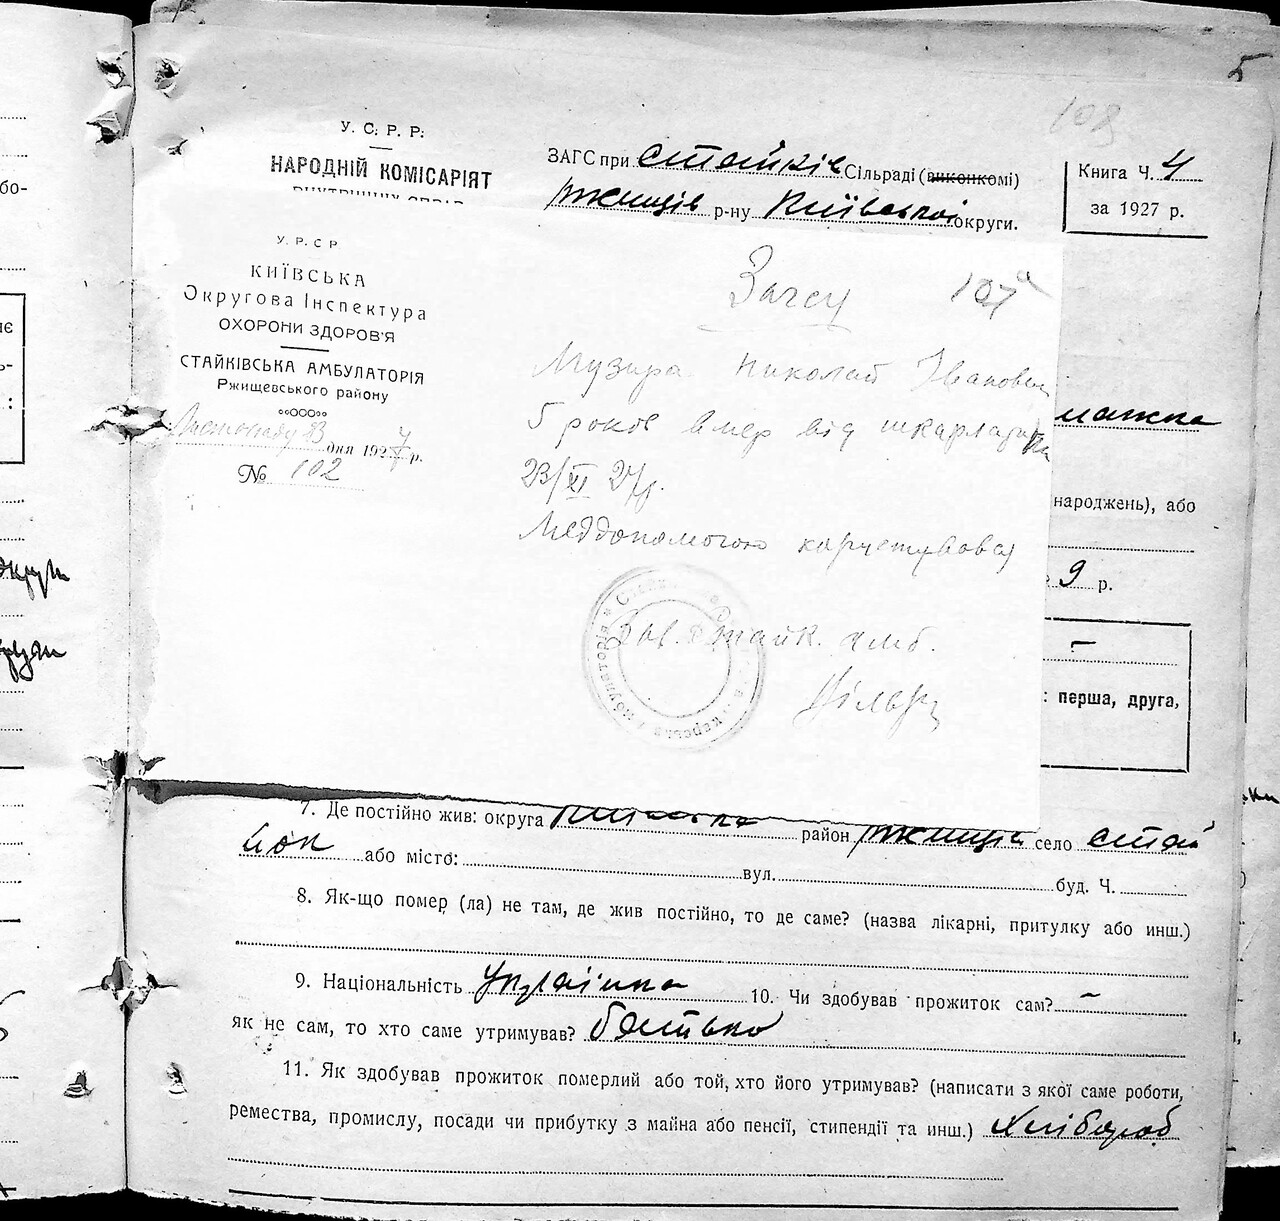 5
108
У. С. Р. Р.
НАРОДНІЙ КОМІСАРІЯТ
ВНУТРІШНІХ СПРАВ
ЗАГС при Стайків Сільраді (виконкомі)
Ржищів р-ну Київської округи.
Книга Ч. 4
за 1927 р.
У. Р. С. Р
КИЇВСЬКА
Округова Інспектура
ОХОРОНИ ЗДОРОВ'Я
СТАЙКІВСЬКА АМБУЛАТОРІЯ
Ржищевського району
Листопаду 23 дня 1927 р.
№ 102
Загсу
107а
Музира Николай Іванович
5 років вмер від шкарлатини
23/XI 27р.
Меддопомогою користувався
Зав. Стайк. амб.
народжень), або
9 р.
–
: перша, друга,
7. Де постійно жив: округа Київська район Ржищів село Стай
ки або місто: вул. буд. Ч.
8. Як-що помер (ла) не там, де жив постійно, то де саме? (назва лікарні, притулку або инш.)
9. Національність Українка 10. Чи здобував прожиток сам? –
як не сам, то хто саме утримував? батько
11. Як здобував прожиток померлий або той, хто його утримував? (написати з якої саме роботи,
ремества, промислу, посади чи прибутку з майна або пенсії, стипендії та инш.) Хлібороб